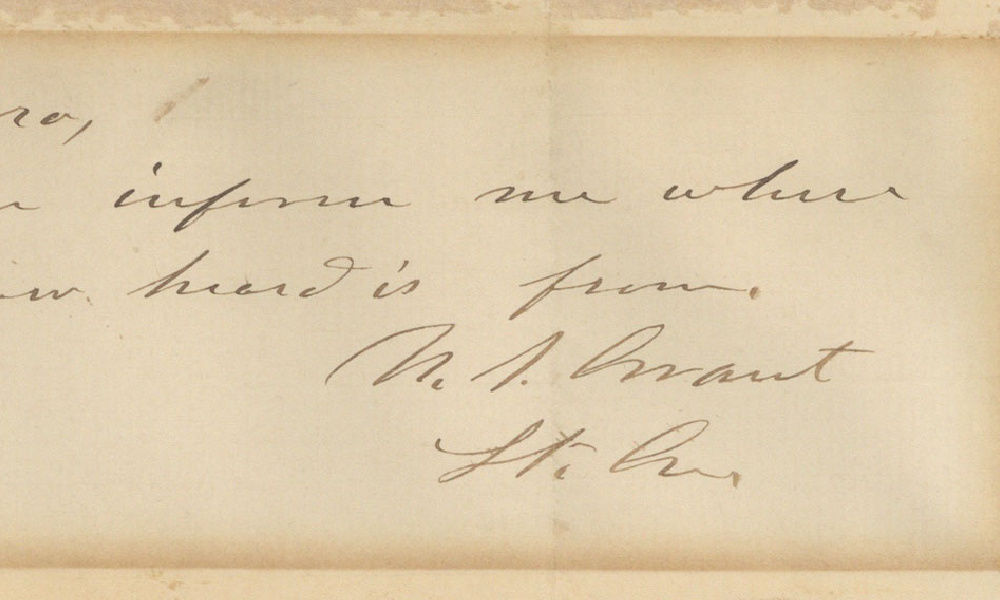 ro,
inform me where
heard is from.
U. S. Grant
Lt. Gn.